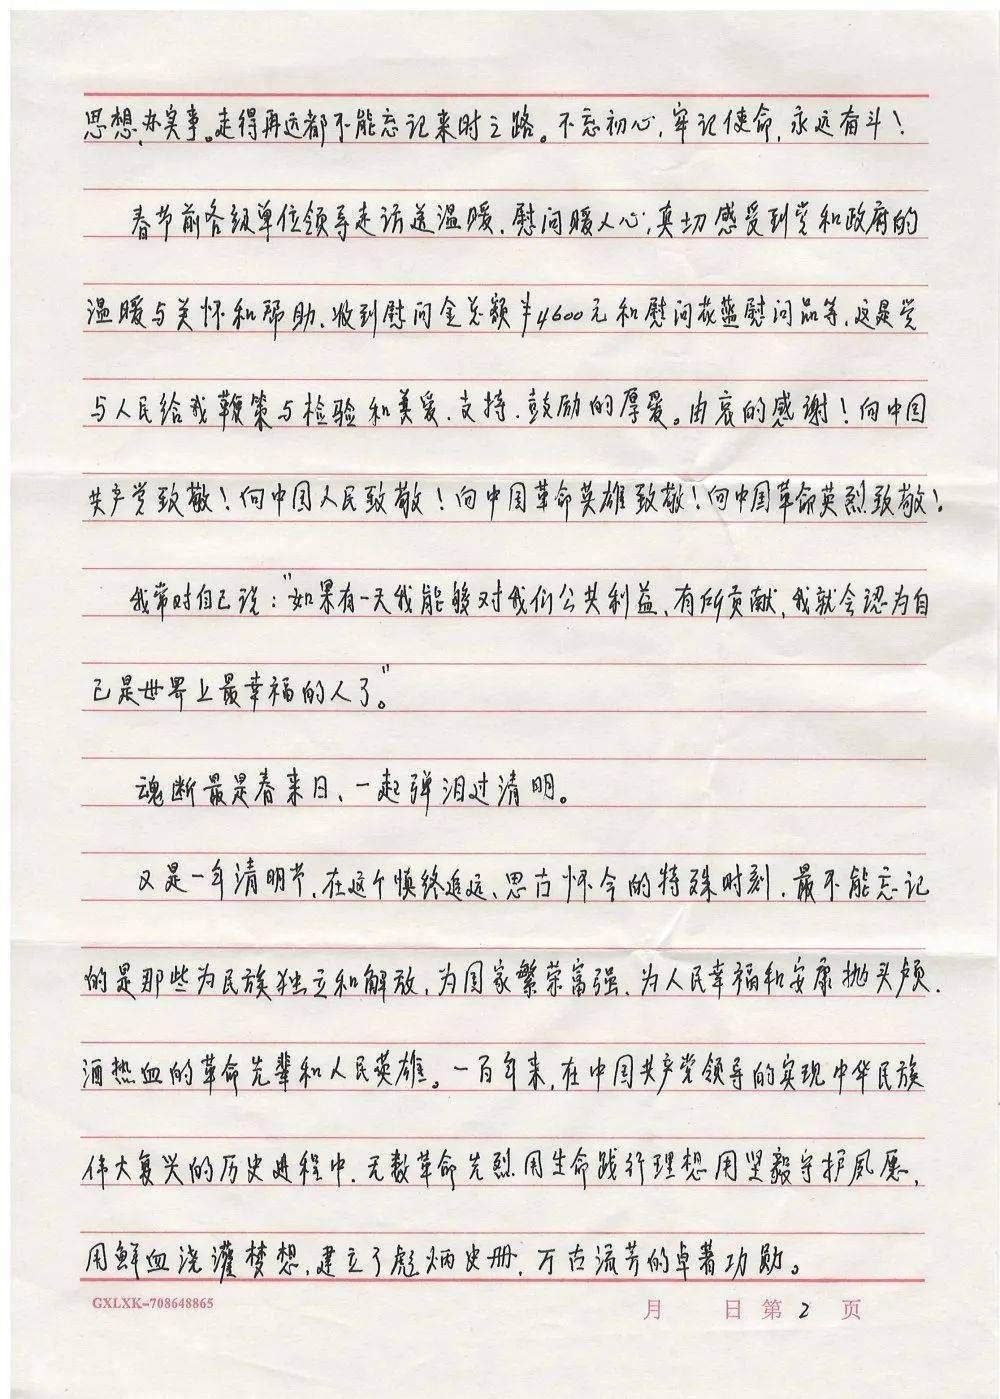 思想,办实事。走得再远都不能忘记来时之路。不忘初心,牢记使命,永远奋斗!
春节前各级单位领导走访送温暖,慰问暖人心,真切感受到党和政府的
温暖与关怀和帮助,收到慰问金总额￥4600元和慰问花蓝慰问品等,这是党
与人民给我鞭策与检验和关爱、支持、鼓励的厚爱。由衷的感谢!向中国
共产党致敬!向中国人民致敬!向中国革命英雄致敬!向中国革命英烈致敬!
我常对自己说:"如果有一天我能够对我们公共利益,有所贡献,我就会认为自
己是世界上最幸福的人了。"
魂断最是春来日、一起弹泪过清明。
又是一年清明节,在这个慎终追远、思古怀今的特殊时刻,最不能忘记
的是那些为民族独立和解放,为国家繁荣富强、为人民幸福和安康抛头颅、
洒热血的革命先辈和人民英雄。一百年来,在中国共产党领导的实现中华民族
伟大复兴的历史进程中,无数革命先烈用生命践行理想用坚毅守护夙愿,
用鲜血浇灌梦想,建立了彪炳史册,万古流芳的卓著功勋。
GXLXK-708648865 月 日 第 2 页